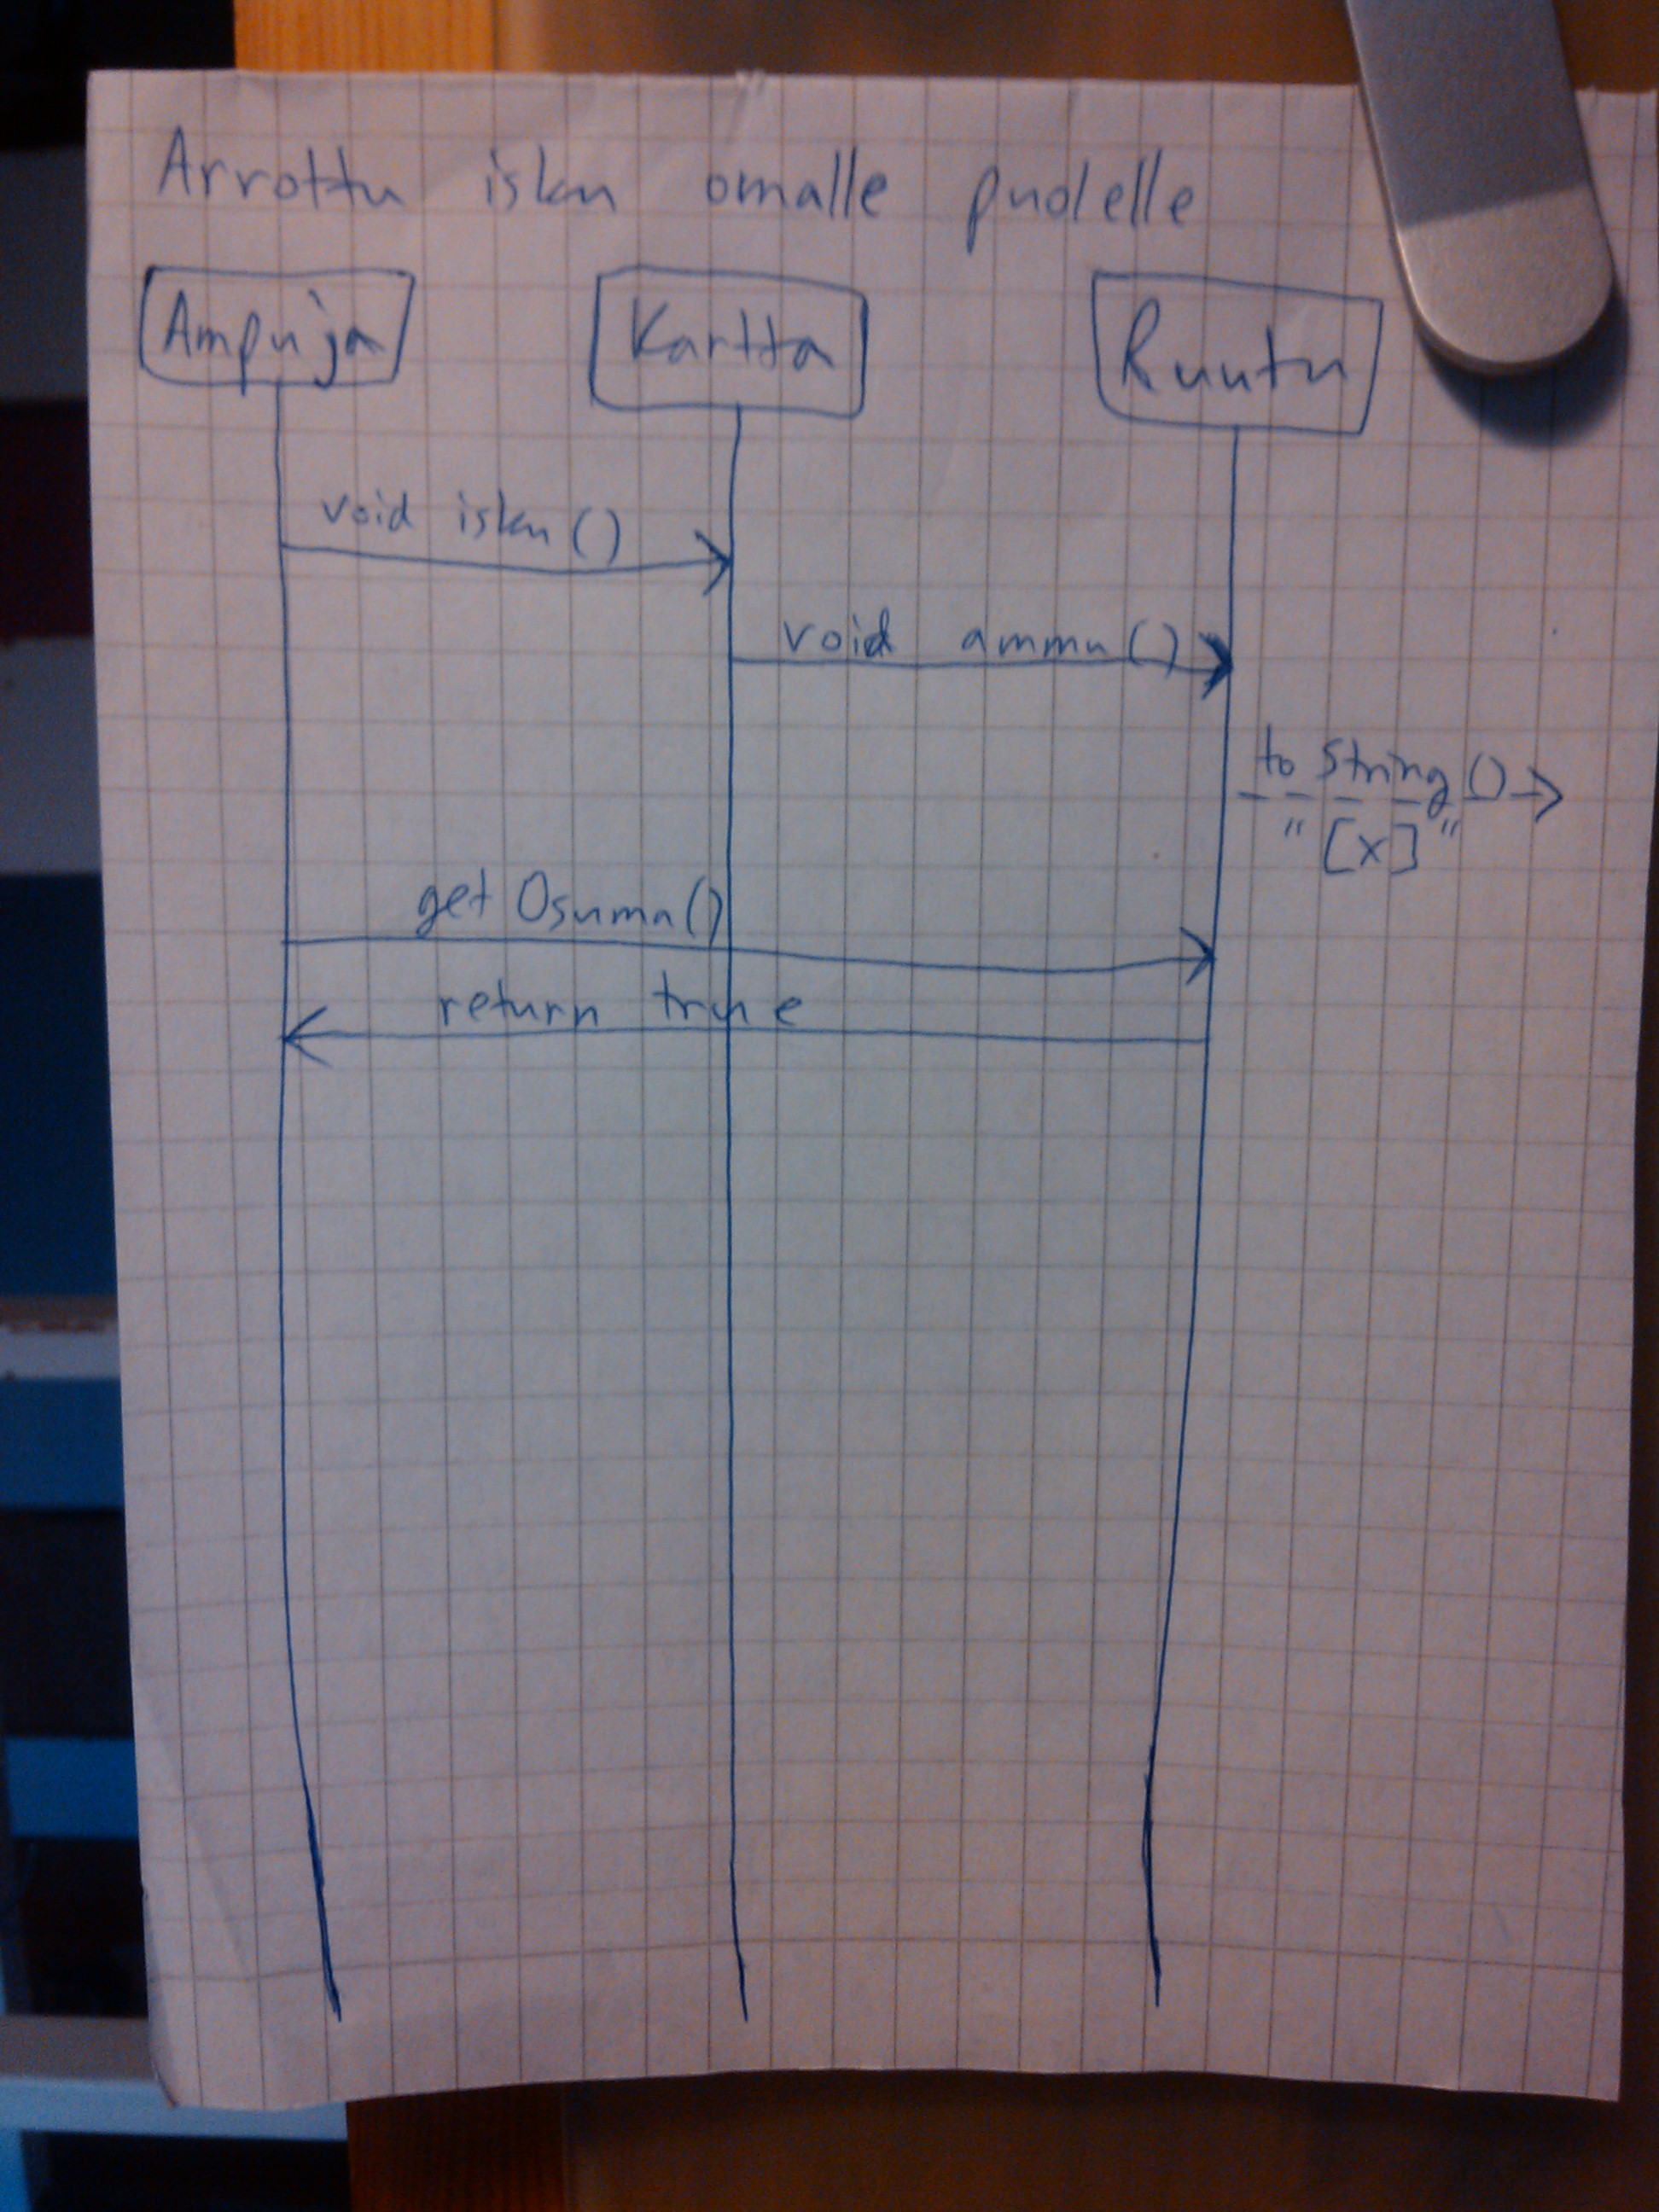 Arvottu isku omalle puolelle
Ampuja
Kartta
Ruutu
void isku()
void ammu()
toString()
"[x]"
getOsuma()
return true